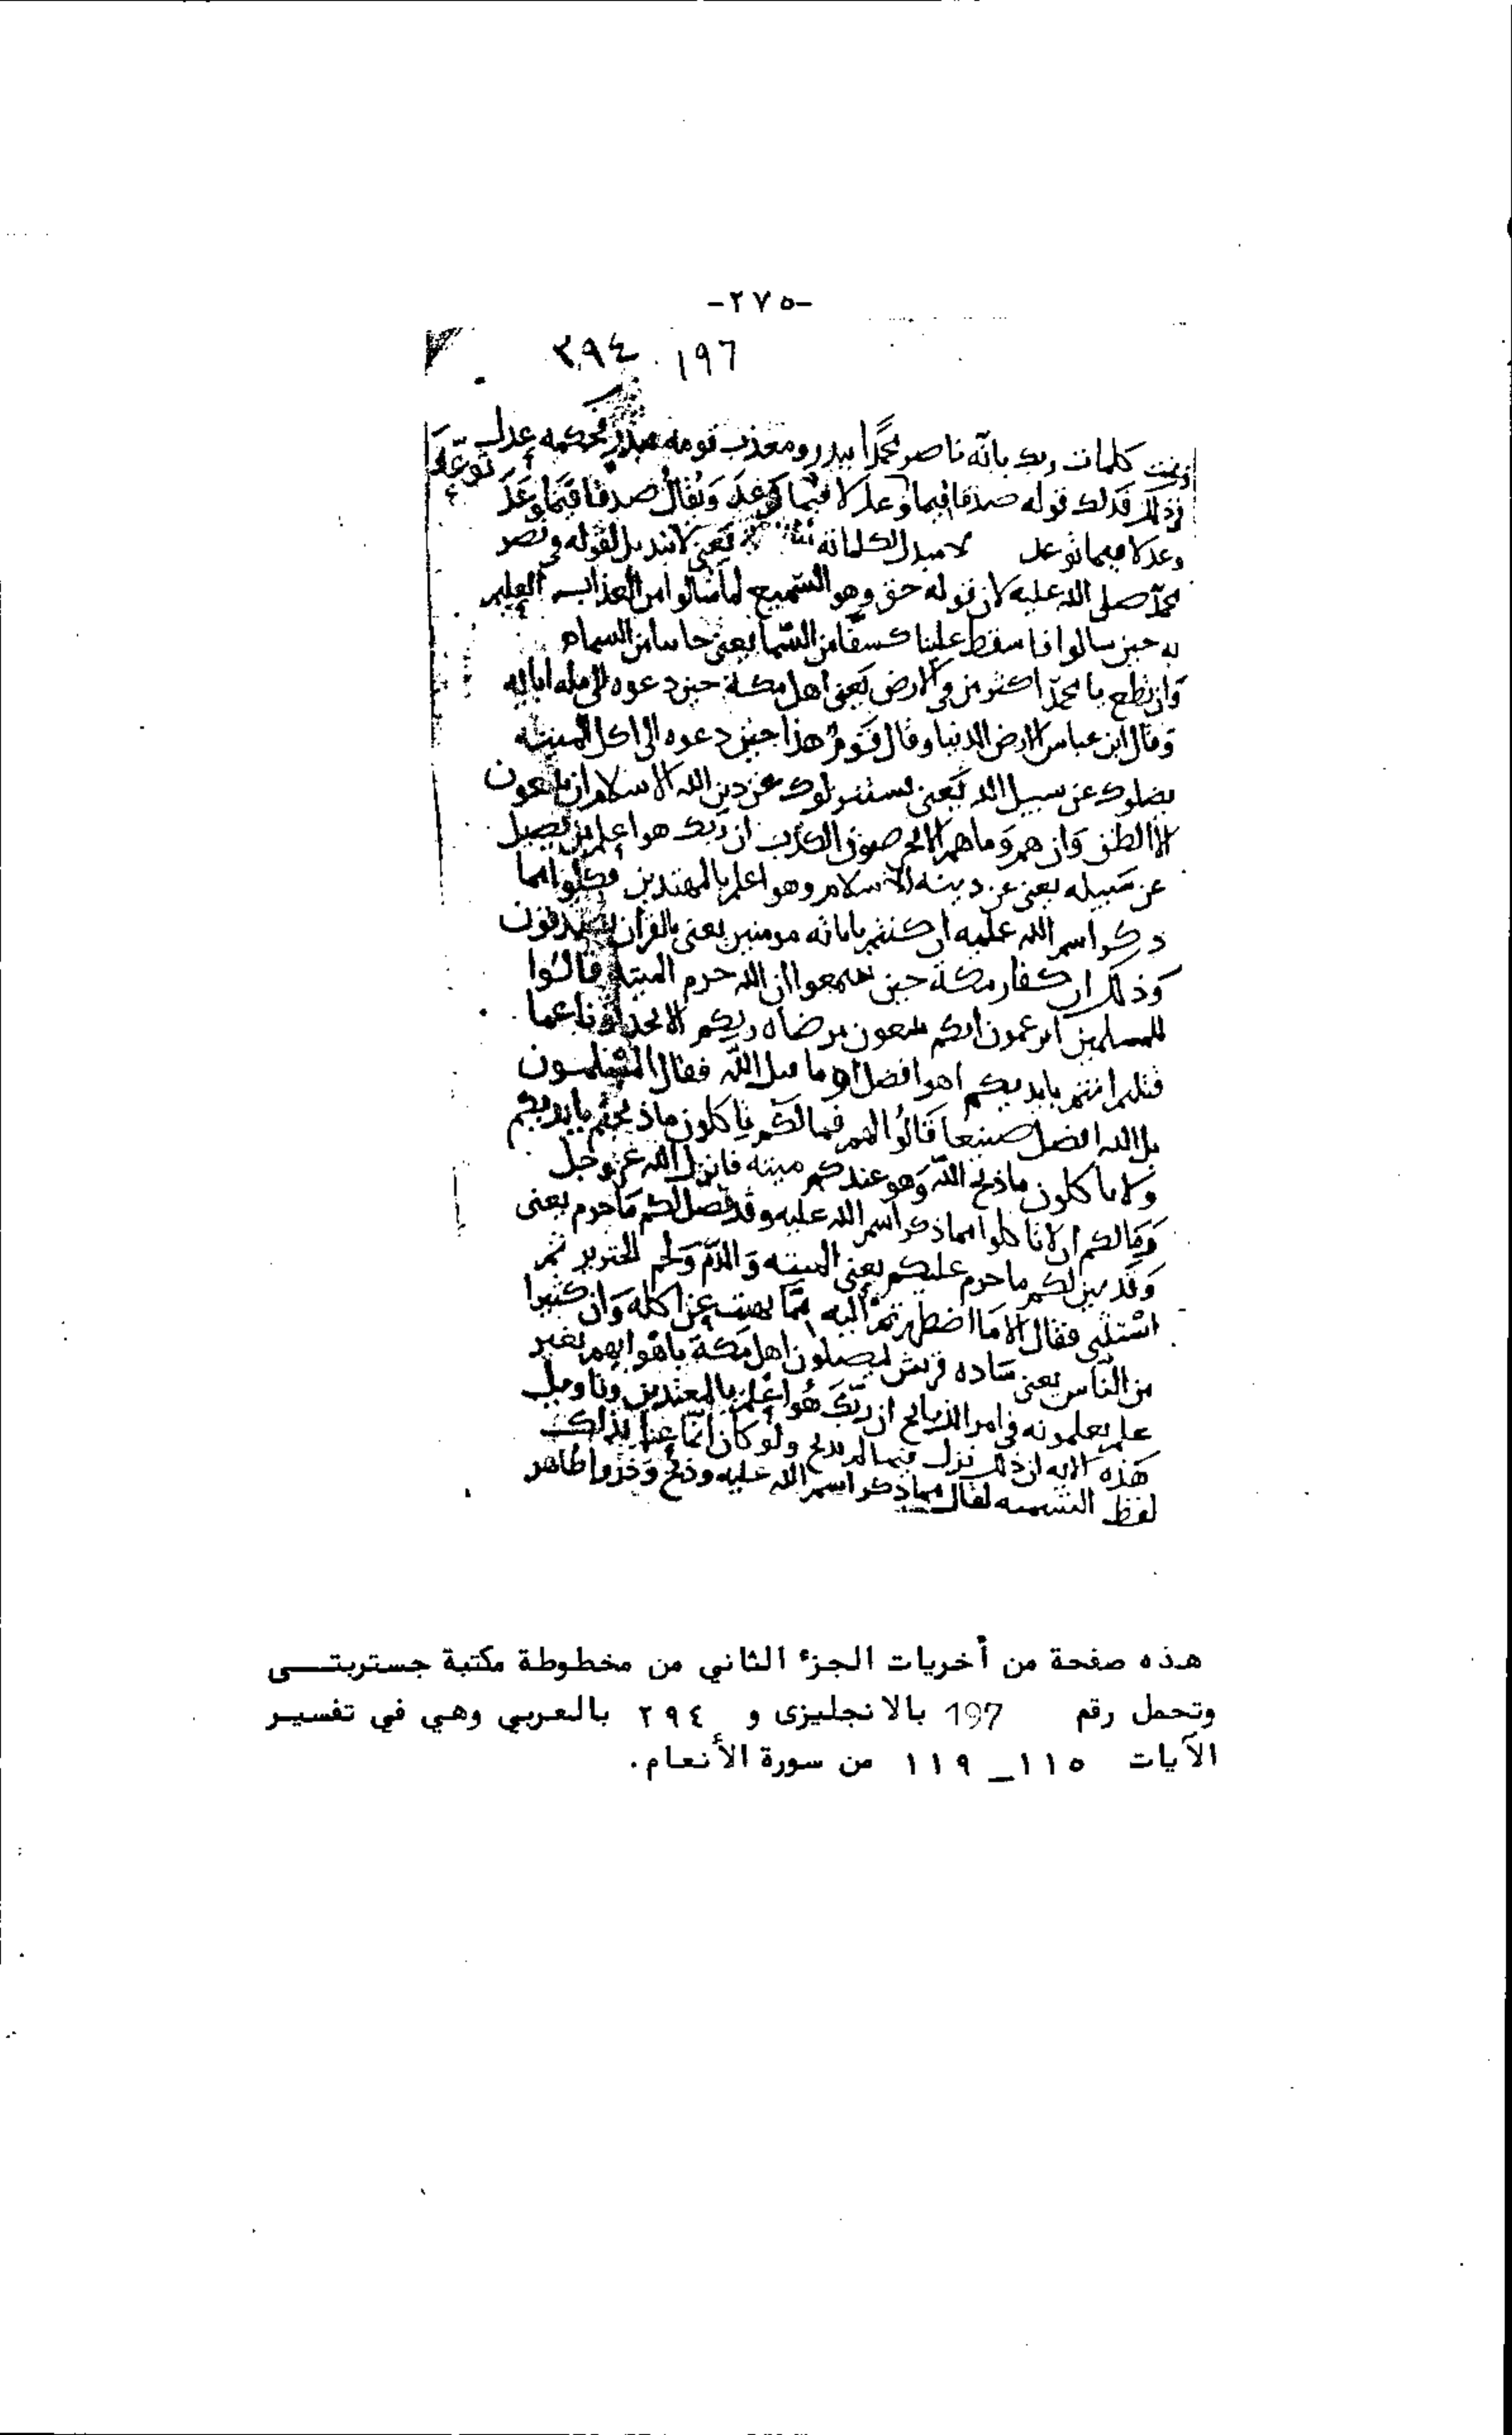 -٢٧٥-
197 ٢٩٤
وتمت كلمات ربك بانه ناصر محمدا ببدر ومعذب قومه ببدر فحكمه عدل
في ذلك فذلك قوله صدقا فيما وعد وعدلا فيما ويقال صدقا فيما وعد
وعدلا فيما توعد لا مبدل لكلماته يعني لا تبديل لقوله في نصر
محمد صلى الله عليه لان قوله حق وهو السميع لما سالوا من العذاب العليم
به حين سالوا فاسقط علينا كسفا من السما يعني جانبا من السماء
وان تطع يا محمد اكثر من في الارض يعني اهل مكة حين دعوه الى ملة ابايه
وقال ابن عباس الارض الدنيا وقال قوم هذا حين دعوه الى اكل الميته
يضلوك عن سبيل الله يعني يستنزلوك عن دين الله الاسلام ان يتبعون
الا الظن وان هم وما هم الا يخرصون الكذب ان ربك هو اعلم من يضل
عن سبيله يعني عن دينه الاسلام وهو اعلم بالمهتدين فكلوا مما
ذكر اسم الله عليه ان كنتم باياته مومنين يعني بالقران مصدقون
وذلك ان كفار مكة حين سمعوا ان الله حرم الميتة قالوا
للمسلمين اتزعمون انكم تتبعون مرضاة ربكم الا تخبرونا عما
قتلتم انتم بايديكم اهو افضل او ما قتل الله فقال المسلمون
بل الله افضل صنيعا قالوا لهم فما لكم تاكلون ما ذبحتم بايديكم
ولا تاكلون ما ذبح الله وهو عندكم ميته فانزل الله عز وجل
وما لكم ان لا تاكلوا مما ذكر اسم الله عليه وقد فصل لكم ما حرم يعني
وقد بين لكم ما حرم عليكم يعني الميته والدم ولحم الخنزير ثم
استثنى فقال الا ما اضطررتم اليه مما نهيت عن اكله وان كثيرا
من الناس يعني ساده قريش ليضلون اهل مكة باهوايهم بغير
علم يعلمونه في امر الذبايح ان ربك هو اعلم بالمعتدين وتاويل
هذه الايه ان ذلك نزل فيما لم يذبح ولو كان انما عنا بذلك
لفظ التسميه لقال مما ذكر اسم الله عليه وذبح وخذوا ظاهر
هذه صفحة من أخريات الجزء الثاني من مخطوطة مكتبة جستربتى
وتحمل رقم 197 بالانجليزى و ٢٩٤ بالعربي وهي في تفسير
الآيات ١١٥_١١٩ من سورة الأنعام.